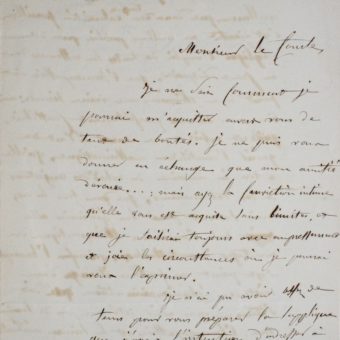 Monsieur le Comte,
je ne sais comment je
pourrai m'acquitter envers vous de
tant de bontés. Je ne puis vous
donner en échange que mon amitié
dévouée....; mais ayez la conviction intime
qu'elle vous est acquise sans limites, et
que je saisirai toujours avec empressement
et joie les circonstances où je pourrai
vous l'exprimer.
Je n'ai pu avoir assez de
tems pour vous préparer la supplique
que l'intention d'adresser à